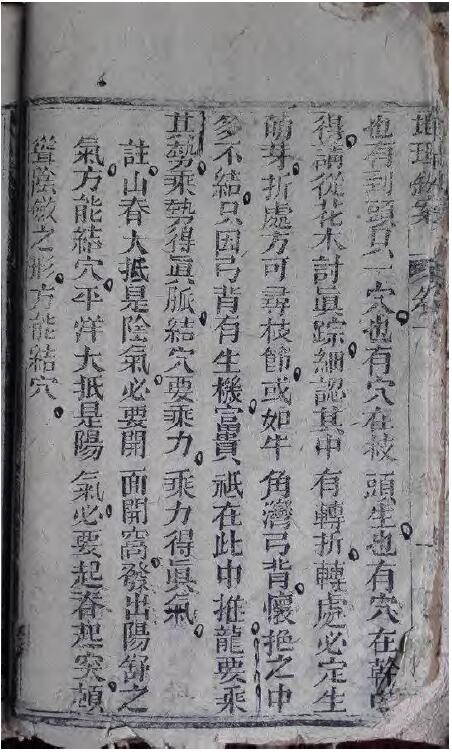 地理鉄案
也有到頭只一穴也有穴在枝頭生也有穴在幹中
得請從花木討真踪細認其中有轉折轉處必定生
萌芽折處方可尋枝節或如牛角灣弓背懷抱之中
多不結只因弓背有生機富貴祇在此中推龍要乘
其勢乘勢得眞脈結穴要乘力乘力得眞氣
註山脊大抵是陰氣必要開面開窩發出陽舒之
氣方能結穴平洋大抵是陽氣必要起脊起突
聳陰斂之形方能結穴